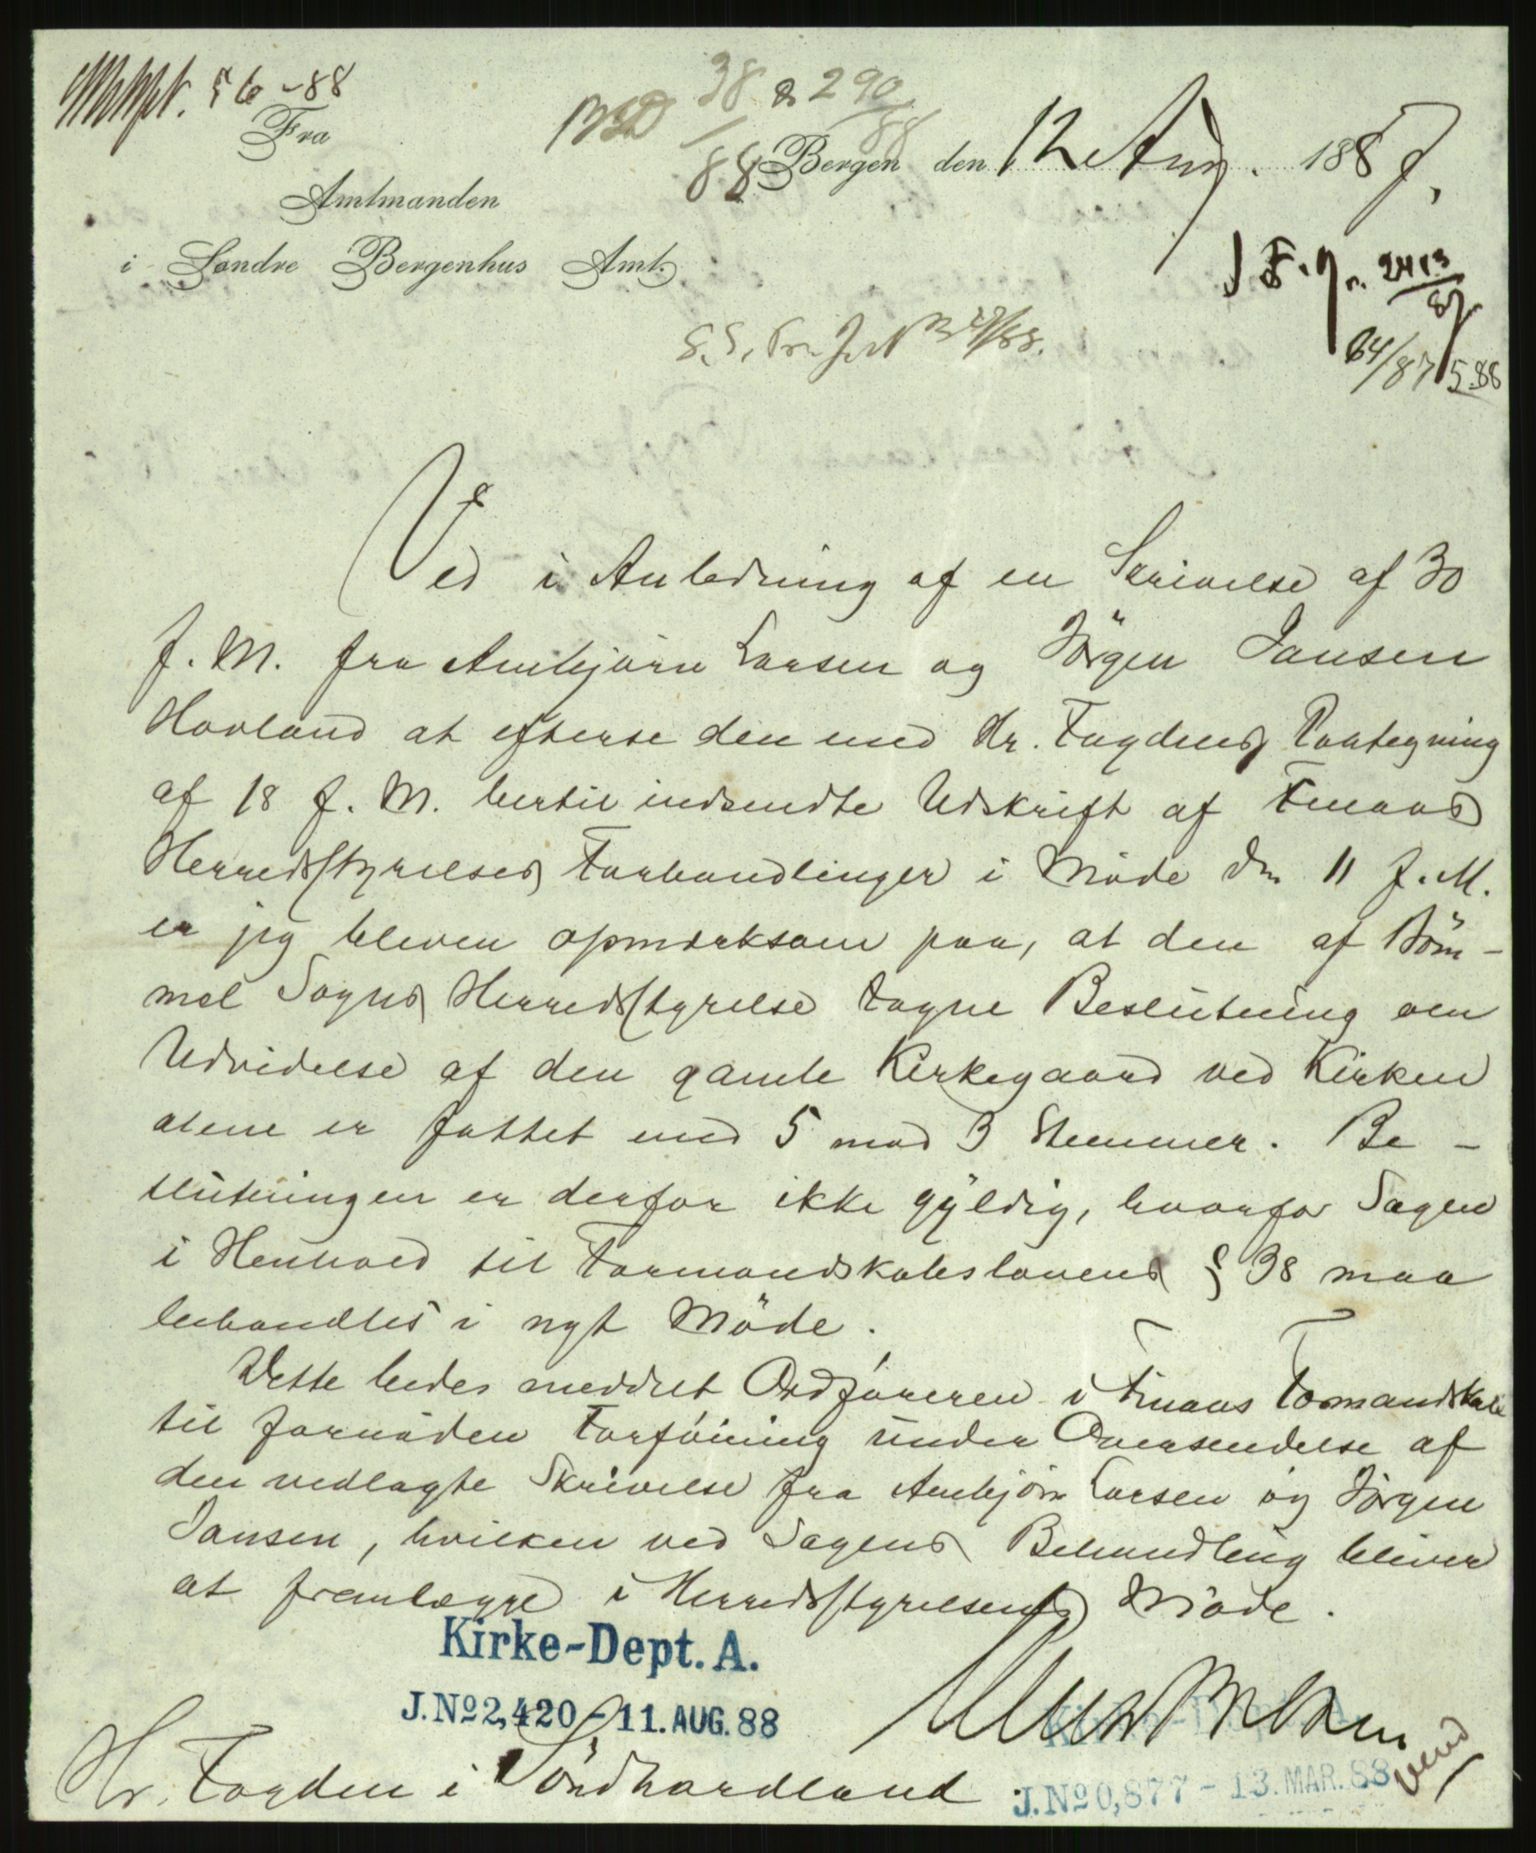 56-88
38 & 290
88 88
Fra
Bergen den 12 Aug. 1887,
Amtmanden
i Søndre Bergenhus Amt.
J. F. N. 2413
87
64/87 5.88
Ved i Anledning af en Skrivelse af 30
f. M. fra Ambjörn Larsen og Jörgen Jansen
Hovland at efterse den med Hr. Fogdens Paategning
af 18 f. M. hertil indsendte Udskrift af Finaas
Herredsstyrelses Forhandlinger i Möde den 11 f. M.
er jeg bleven opmærksom paa, at den af Böm-
mel Sogns Herredsstyrelse tagne Beslutning om
Udvidelse af den gamle Kirkegaard ved Kirken
alene er fattet med 5 mod 3 Stemmer. Be-
slutningen er derfor ikke gyldig, hvorfor Sagen
i Henhold til Formandskabslovens § 38 maa
behandles i nyt Möde.
Dette bedes meddelt Ordföreren i Finaas Formandskab
til fornöden Forföining under Oversendelse af
den vedlagte Skrivelse fra Ambjörn Larsen og Jörgen
Jansen, hvilken ved Sagens Behandling bliver
at fremlægge i Herredsstyrelsens Möde.
Kirke-Dept. A.
J. No 2,420 - 11. AUG. 88
Hr. Fogden i Söndhordland
J. No 0,877 - 13. MAR. 88
vend